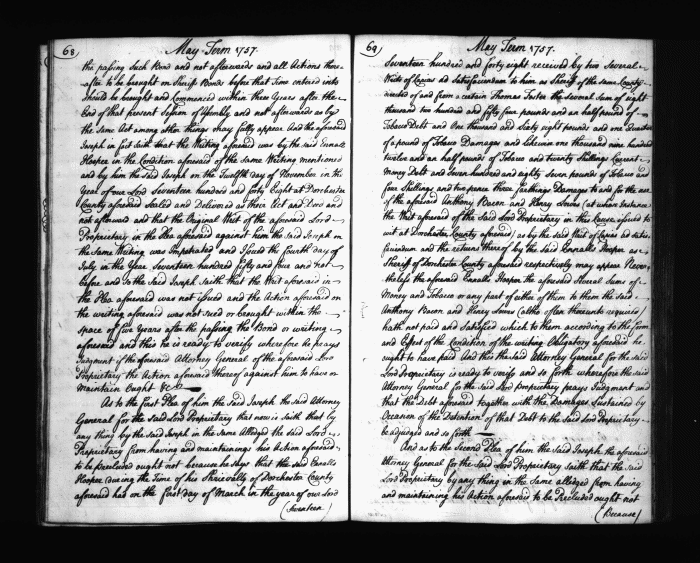 68
May Term 1757.
the passing such Bond and not afterwards and all Actions there
after to be brought on Sheriff Bonds before that time entered into
should be brought and Commenced within three Years after the
End of that present Session of Assembly and not afterwards as by
the same Act among other things may fully appear And the aforesaid
Joseph in fact saith that the Writing aforesaid was by the said Ennalls
Hooper in the Condition aforesaid of the same Writing mentioned
and by him the said Joseph on the Twelfth day of November in the
Year of our Lord Seventeen hundred and forty Eight at Dorchester
County aforesaid Sealed and Delivered as their Act and Deed and
not afterward and that the Original Writ of the aforesaid Lord
Proprietary in the Plea aforesaid against him the said Joseph on
the same Writing was Impetrated and Issued the fourth day of
July in the Year Seventeen hundred fifty and four and not
before and so the said Joseph saith that the Writ aforesaid in
the Plea aforesaid was not issued and the Action aforesaid on
the writing aforesaid was not sued or brought within the
space of five Years after the passing the Bond or writing
aforesaid and this he is ready to verify wherefore he prays
Judgment if the aforesaid Attorney General of the aforesaid Lord
Proprietary the Action aforesaid thereof against him to have or
maintain Ought &c
As to the first Plea of him the said Joseph the said Attorney
General for the said Lord Proprietary that now is saith that by
any thing by the said Joseph in the same Alledged the said Lord
Proprietary from having and maintaining his Action aforesaid
to be precluded ought not because he says that the said Ennalls
Hooper during the Time of his Shrievalty of Dorchester County
aforesaid had on the first day of March in the year of our Lord
(Seventeen)
69
May Term 1757.
Seventeen hundred and forty eight received by two several
Writs of Capias ad Satisfaciendum to him as Sheriff of the same County
directed of and from a certain Thomas Foster the several sum of eight
thousand two hundred and fifty four pounds and an half pound of
Tobacco Debt and One thousand and Sixty eight pounds and one Quarter
of a pound of Tobacco Damages and likewise one thousand nine hundred
twelve and an half pounds of Tobacco and twenty Shillings Current
Money Debt and Seven hundred and eighty seven pounds of Tobacco and
four Shillings and two pence three farthings Damages to and for the use
of the aforesaid Anthony Bacon and Henry Lowes (at whose instance
the Writ aforesaid of the said Lord Proprietary in this Cause issued to
wit at Dorchester County aforesaid) as by the said Writs of Capias ad Satis
faciendum and the returns thereof by the said Ennalls Hooper as
Sheriff of Dorchester County aforesaid respectively may appear Never
theless the aforesaid Ennalls Hooper the aforesaid several Sums of
Money and Tobacco or any part of either of them to them the said
Anthony Bacon and Henry Lowes (altho often thereunto required)
hath not paid and Satisfied which to them according to the form
and Effect of the Condition of the writing Obligatory aforesaid he
ought to have paid And this the said Attorney General for the said
Lord Proprietary is ready to verify and so forth wherefore the said
Attorney General for the said Lord Proprietary prays Judgment and
that the Debt aforesaid together with the Damages sustained by
Occasion of the Detention of that Debt to the said Lord Proprietary
be adjudged and so forth
And as to the Second Plea of him the said Joseph the aforesaid
Attorney General for the said Lord Proprietary Saith that the said
Lord Proprietary by any thing in the same alledged from having
and maintaining his Action aforesaid to be Precluded ought not
(Because)